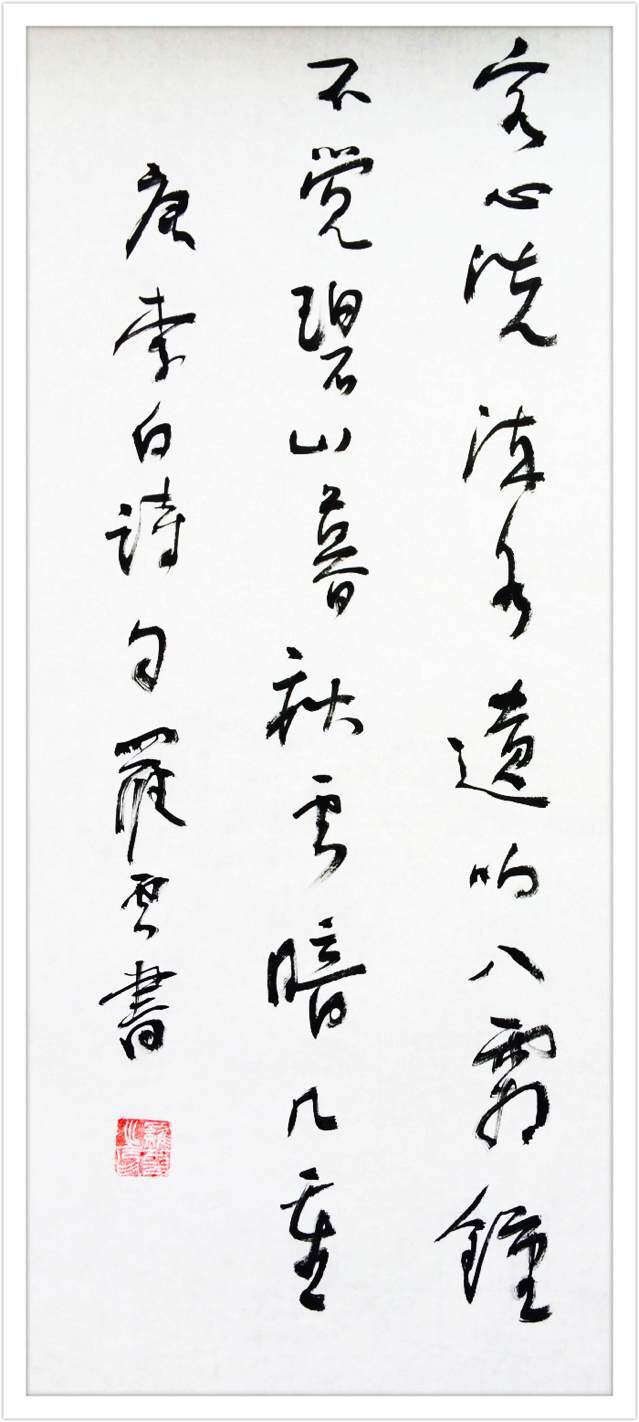 客心洗流水遗响入霜鐘
不觉碧山暮秋云暗几重
唐李白诗句罗云書